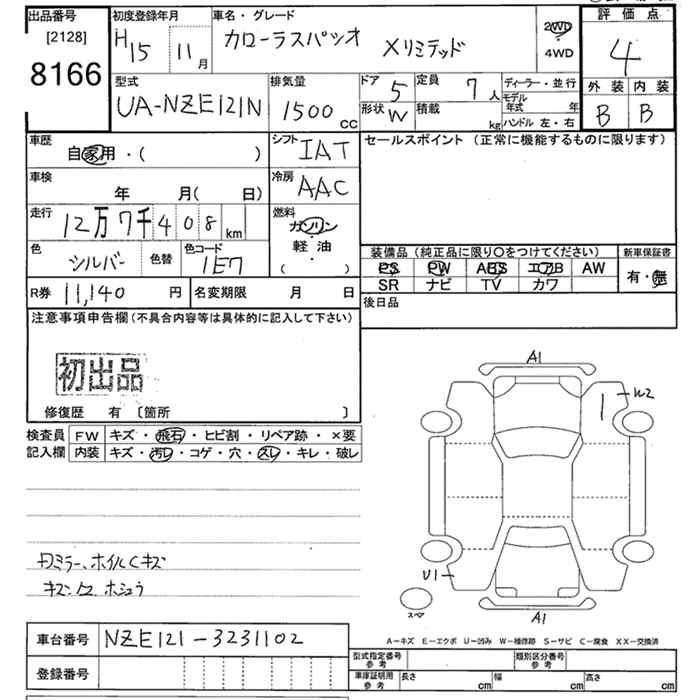 出品番号
[2128]
8166
初度登録年月
H15 11月
車名・グレード
カローラスパシオ Xリミテッド
2WD
4WD
評価点
4
外装 内装
B B
型式
UA-NZE121N
排気量
1500cc
ドア 5
形状 W
定員 7人
積載 kg
ディーラー・並行
モデル年式 年
ハンドル 左・右
車歴
自家用・( )
シフト IAT
セールスポイント (正常に機能するものに限ります)
車検
年 月( 日)
冷房 AAC
走行
12万7千408km
燃料
ガソリン
軽油
( )
色
シルバー
色替
色コード
1E7
装備品(純正品に限り○をつけてください)
新車保証書
PS PW ABS エアB AW
SR ナビ TV カワ
有・無
R券 11,140円
名変期限 月 日
後日品
注意事項申告欄(不具合内容等は具体的に記入して下さい)
初出品
修復歴 有 [箇所 ]
検査員
記入欄
FW キズ・飛石・ヒビ割・リペア跡・×要
内装 キズ・汚レ・コゲ・穴・スレ・キレ・破レ
A1
W2
U1
スペア
A1
A-キズ E-エクボ U-凹み W-補修跡 S-サビ C-腐食 XX-交換済
車台番号 NZE121-3231102
登録番号
型式指定番号
参考
類別区分番号
参考
車庫証明用
参考
長さ cm 幅 cm 高さ cm